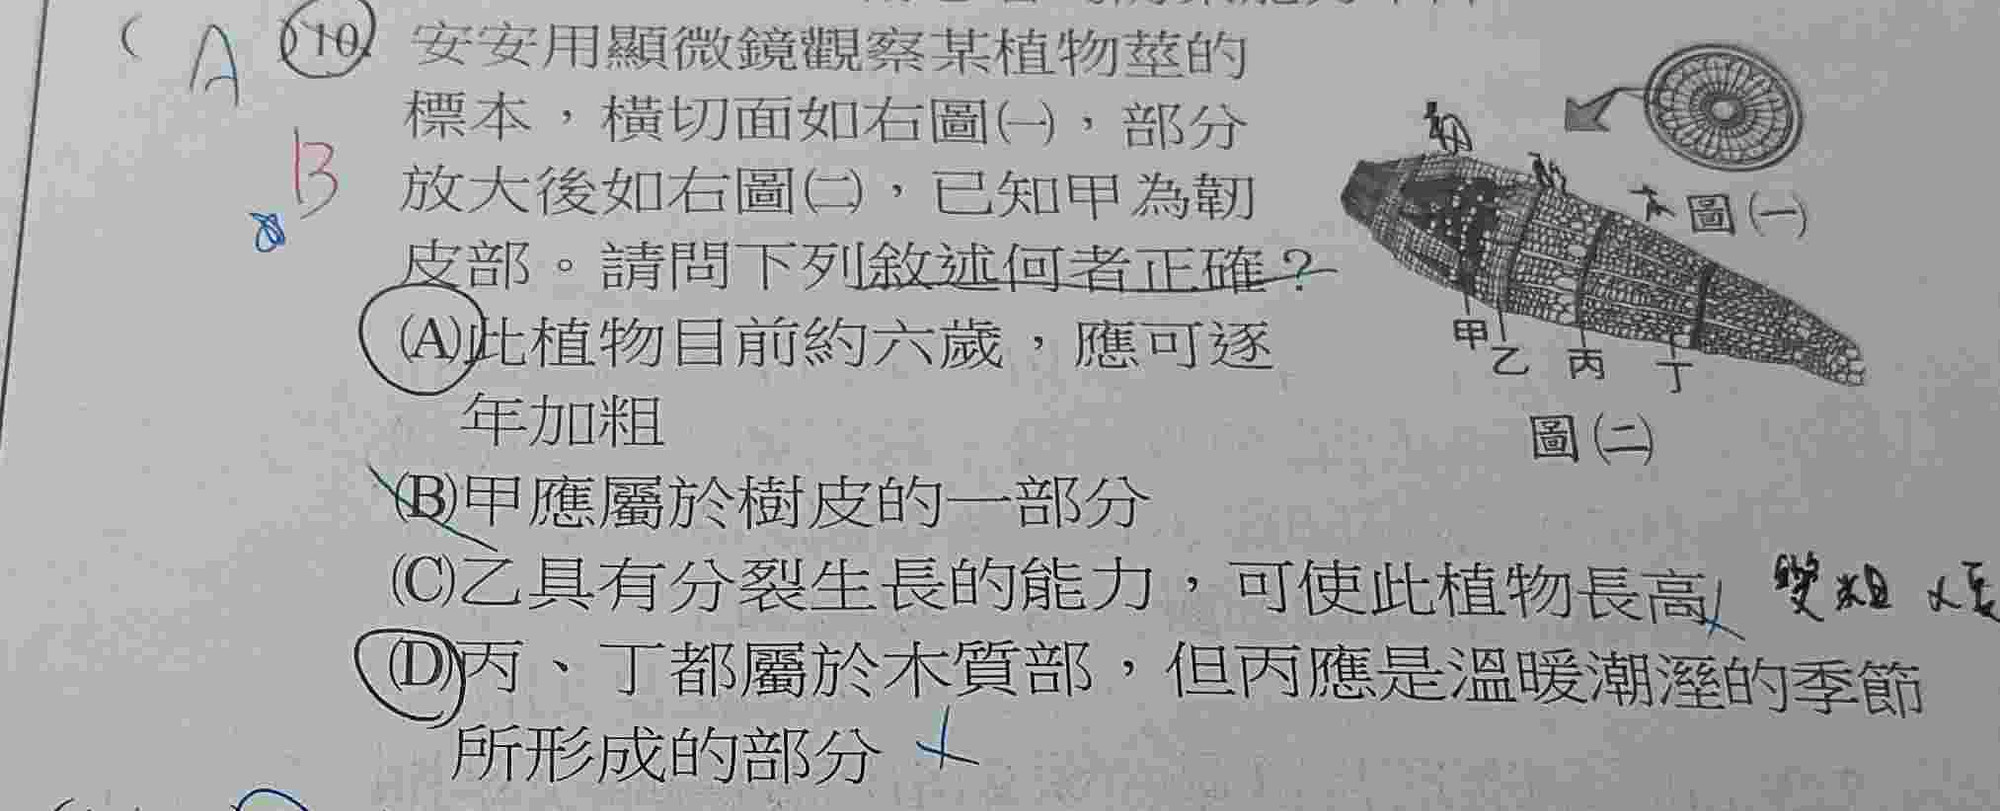 ( A )10. 安安用顯微鏡觀察某植物莖的
標本，橫切面如右圖㈠，部分
B 放大後如右圖㈡，已知甲為韌
皮部。請問下列敘述何者正確？
(A)此植物目前約六歲，應可逐
年加粗
(B)甲應屬於樹皮的一部分
(C)乙具有分裂生長的能力，可使此植物長高 變粗
(D)丙、丁都屬於木質部，但丙應是溫暖潮溼的季節
所形成的部分
韌
木 圖(一)
甲 乙 丙 丁
圖(二)